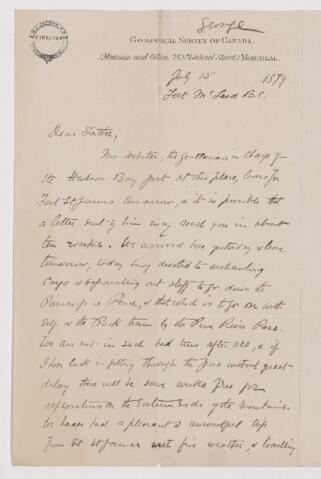 George
GEOLOGICAL SURVEY OF CANADA.
(Museum and Office, 76 St Gabriel Street) MONTREAL.
DIRECTOR
July 15 1879.
Fort McLeod B.C.
Dear Father,
Mr Webster, the gentleman in charge of
the Hudson Bay post at this place, leaves for
Fort St James tomorrow, & it is possible that
a letter sent by him may reach you in about
ten weeks. We arrived here yesterday & leave
tomorrow, today being devoted to exchanging
Cargo & separating out stuff to go down the
Parsnip & Peace, & that which is to go on with
Self & the Pack train by the Pine River Pass.
We are not in such bad time after all, & if
I have luck in getting through the Pass without great
delay there will be some weeks free for
exploration on the Eastern Side of the mountains.
We have had a pleasant & uneventful trip
from Ft. St James with fine weather, &